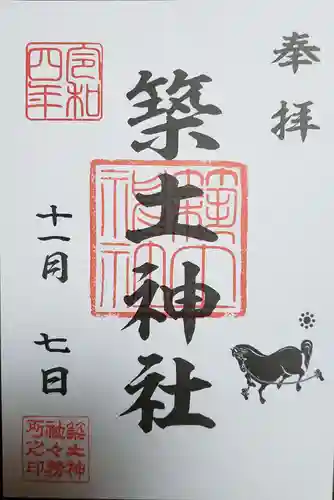 奉拝
築土神社
令和四年
十一月七日
築土神社
築土神社々務所之印